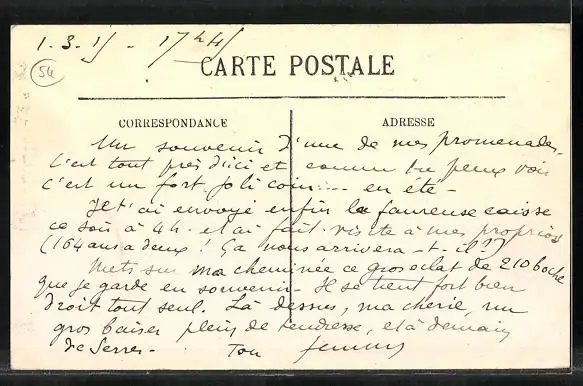 1.3.15 - 17h45
54
CARTE POSTALE
CORRESPONDANCE
ADRESSE
Un souvenir d'une de mes promenades.
C'est tout près d'ici et comme tu peux voir
c'est un fort joli coin..... en été -
Je t'ai envoyé enfin la fameuse caisse
ce soir à 4h. et ai fait visite à mes proprios
(164 ans à deux ! Ça nous arrivera-t-il ??)
Mets sur ma cheminée ce gros éclat de 210 boche
que je garde en souvenir. Il se tient fort bien
droit tout seul. Là dessus, ma chérie, un
gros baiser plein de tendresse, et à demain
de Serres - Ton